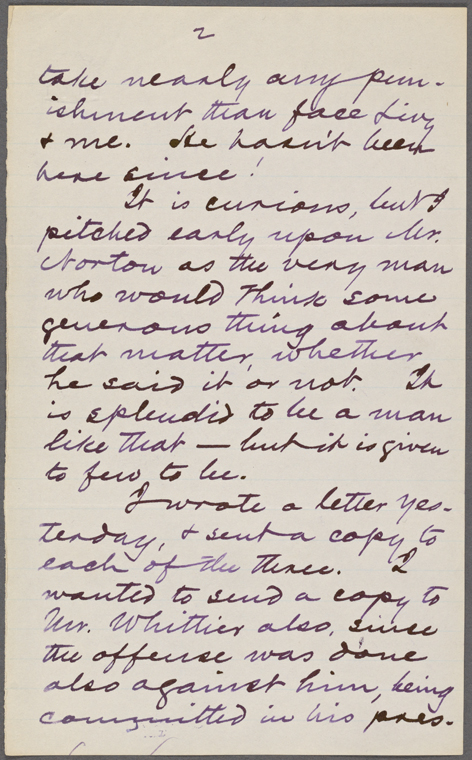 2
take nearly any pun-
ishment than face Livy
& me. He hasn't been
here since!
It is curious, but I
pitched early upon Mr.
Norton as the very man
who would think some
generous thing about
that matter, whether
he said it or not. It
is splendid to be a man
like that — but it is given
to few to be.
I wrote a letter yes-
terday, & sent a copy to
each of the three. I
wanted to send a copy to
Mr. Whittier also, since
the offense was done
also against him, being
committed in his pres-